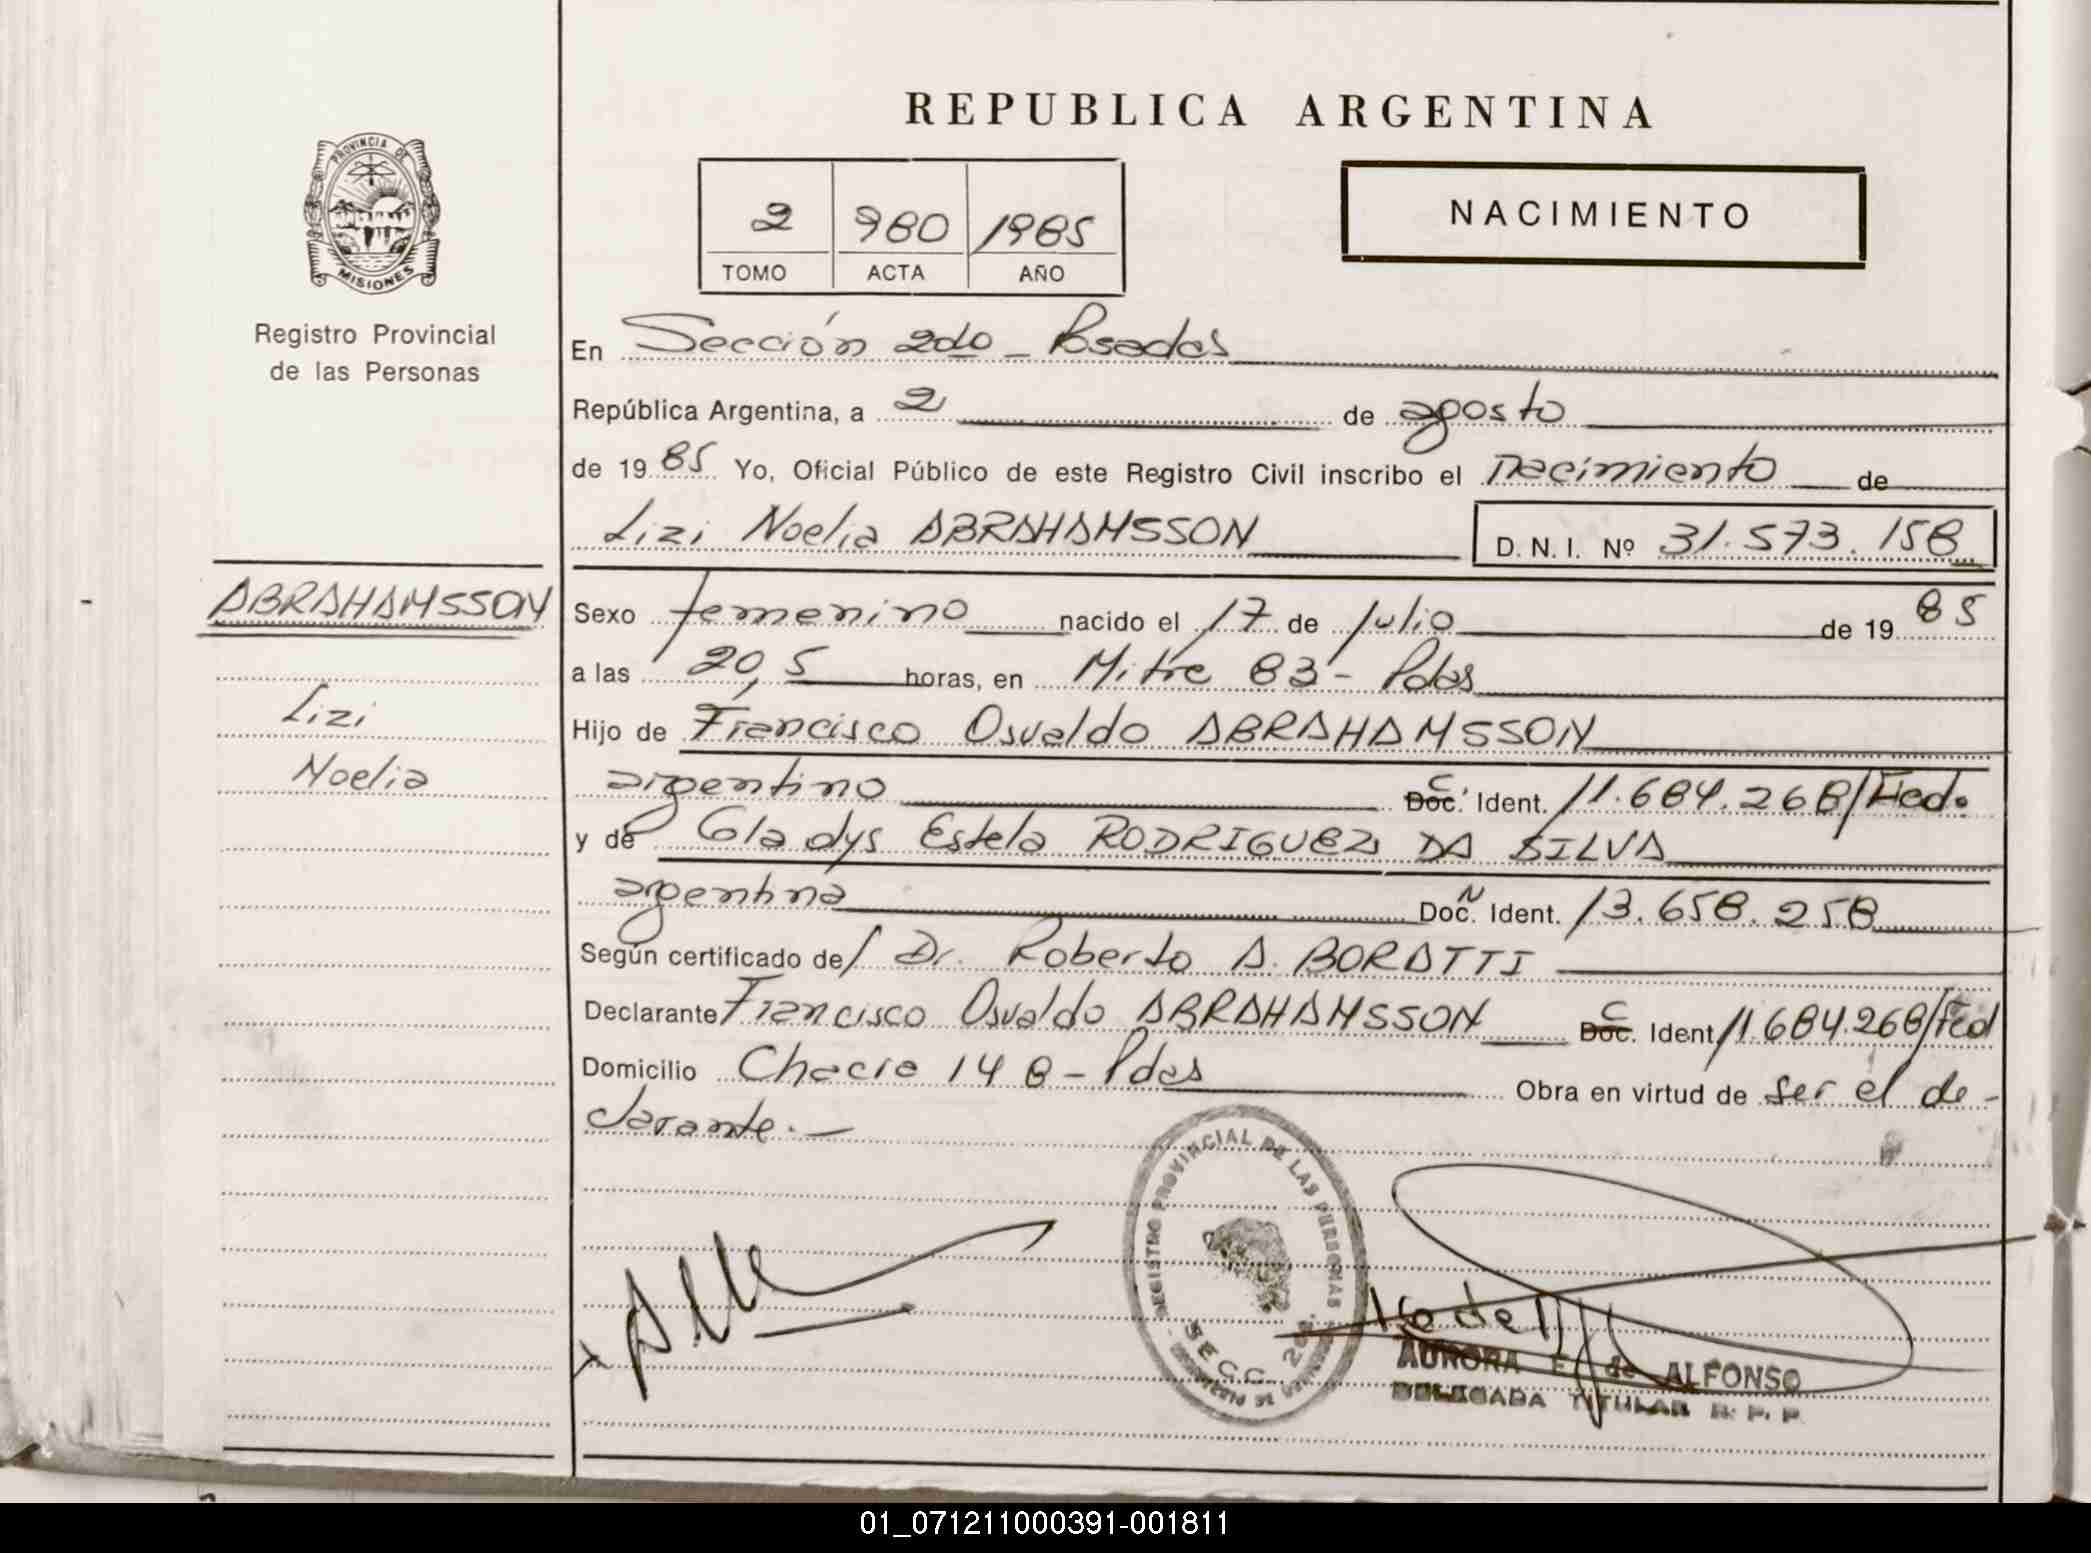 REPUBLICA ARGENTINA
PROVINCIA DE
MISIONES
Registro Provincial
de las Personas
2 980 1985
TOMO ACTA AÑO
NACIMIENTO
En Sección 2do - Posadas
República Argentina, a 2 de agosto
de 1985 Yo, Oficial Público de este Registro Civil inscribo el nacimiento de
Lizi Noelia ABRAHAMSSON D. N. I. Nº 31.573.158
ABRAHAMSSON
Lizi
Noelia
Sexo femenino nacido el 17 de julio de 1985
a las 20,5 horas, en Mitre 83 - Pdas
Hijo de Francisco Osvaldo ABRAHAMSSON
argentino C. Ident. 11.684.268/Fed.
y de Gladys Estela RODRIGUEZ DA SILVA
argentina Doc. N Ident. 13.658.258
Según certificado del Dr. Roberto A. BORATTI
Declarante Francisco Osvaldo ABRAHAMSSON C Ident 11.684.268/Fed
Domicilio Chacra 148 - Pdas Obra en virtud de ser el de-
clarante.-
REGISTRO PROVINCIAL DE LAS PERSONAS
SECC. 2da.
AURORA E. de ALFONSO
DELEGADA TITULAR R. P. P.
01_071211000391-001811